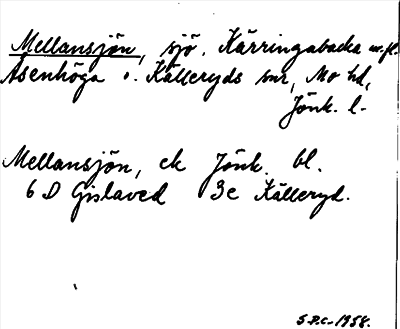 Mellansjön, sjö, Kärringabacka m.fl.
Åsenhöga o. Källeryds snr, Mo hd,
Jönk. l.
Mellansjön, ek Jönk. bl.
6 D Gislaved 3c Källeryd.
S.P.C. 1958.